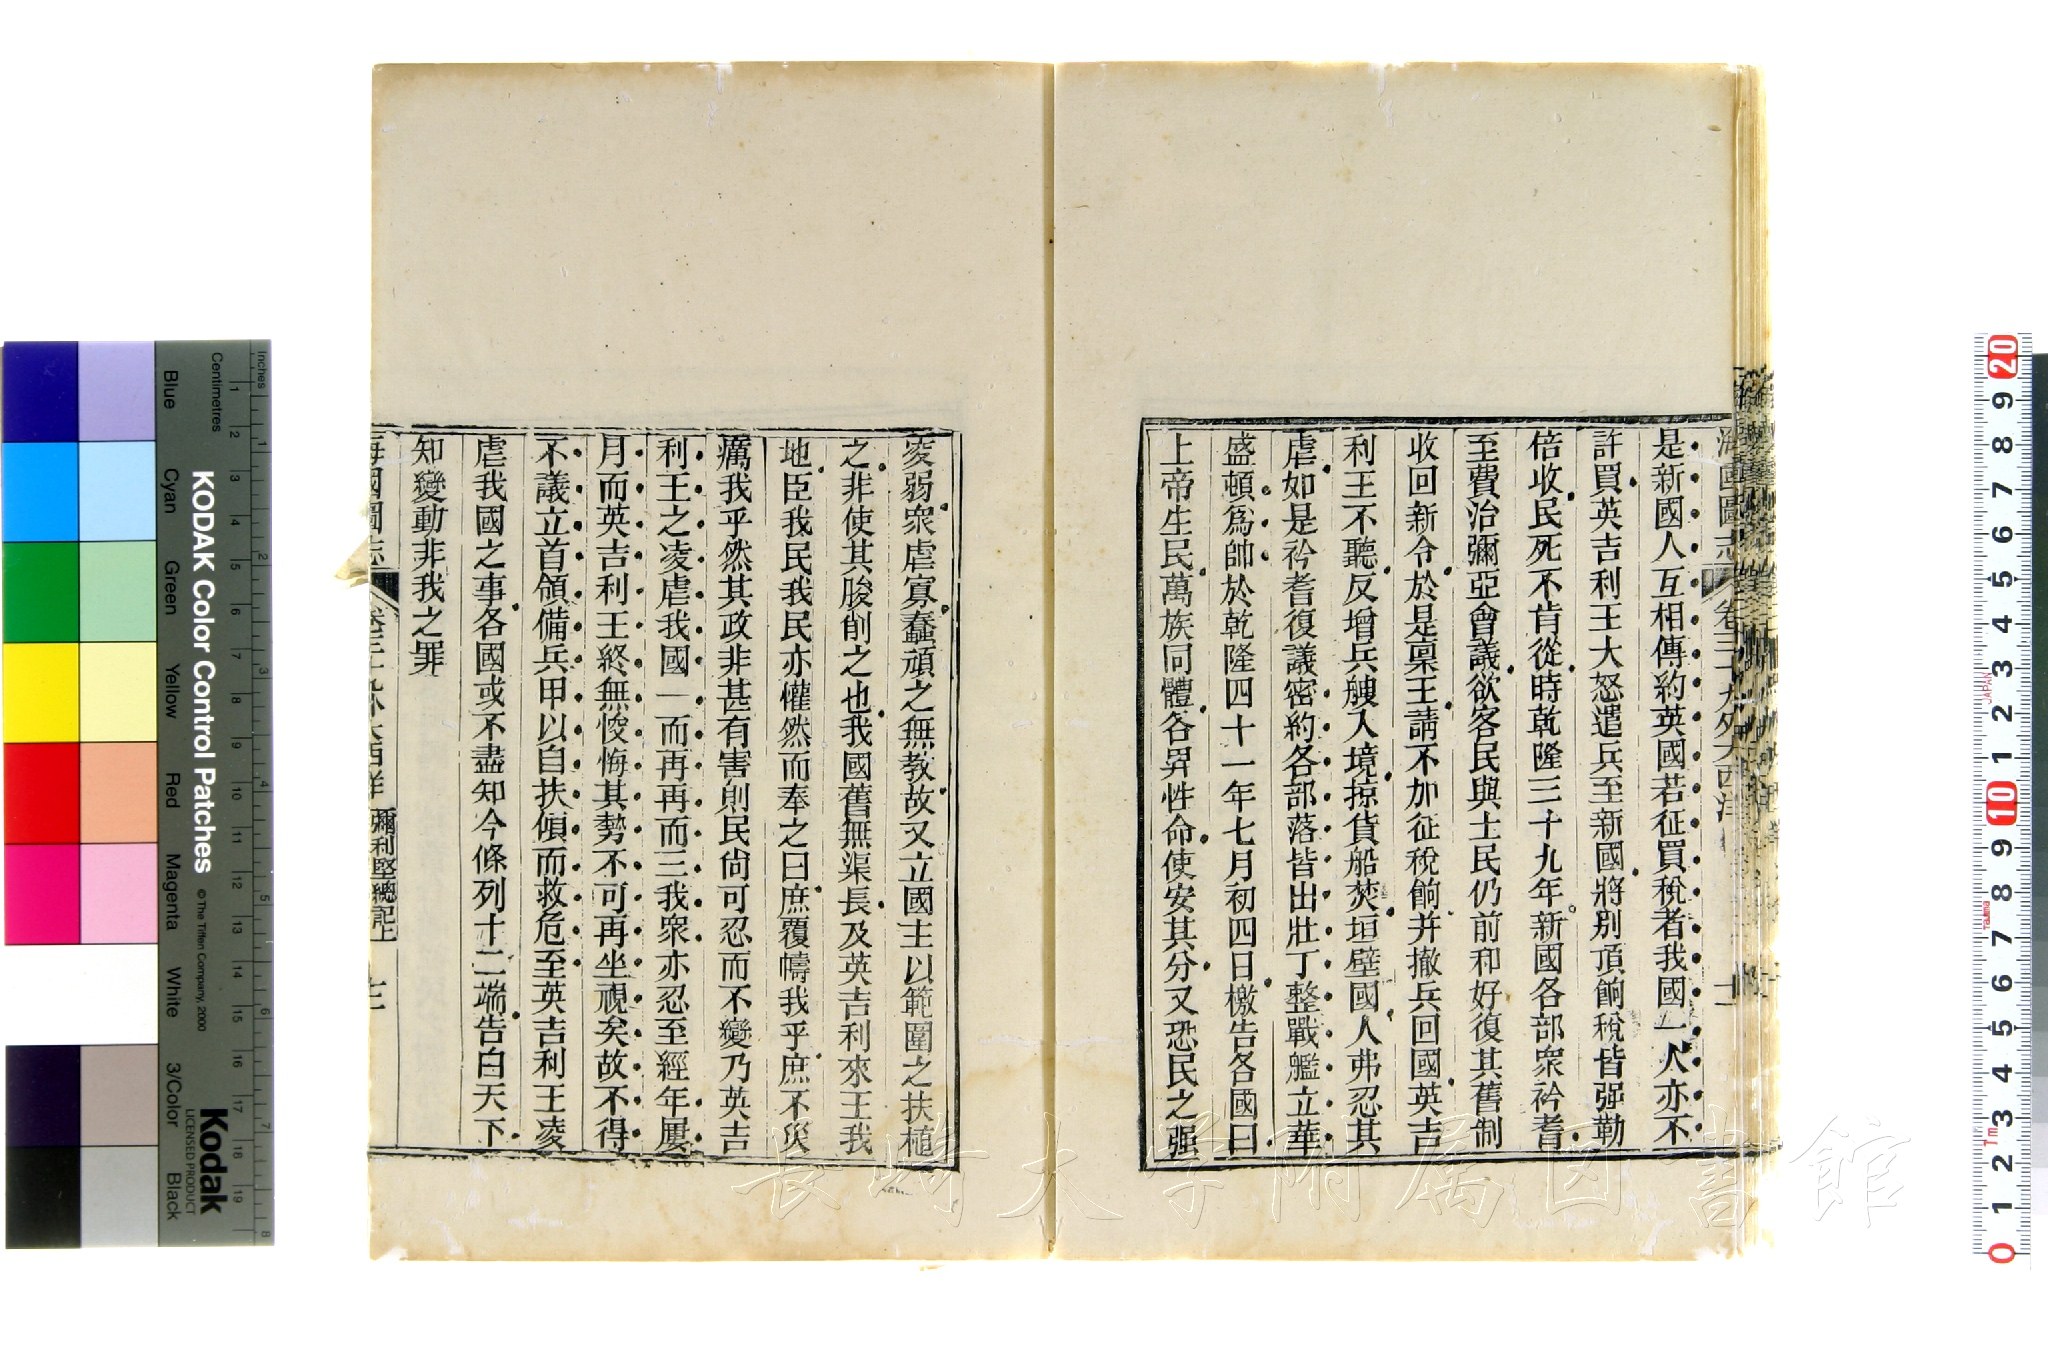 海國圖志 卷三十九 外大西洋
是新國人互相傳約英國若征買稅者我國一人亦不
許買英吉利王大怒遣兵至新國將別項餉稅皆强勒
倍收民死不肯從時乾隆三十九年新國各部衆衿耆
至費治彌亞會議欲客民與士民仍前和好復其舊制
收回新令於是稟王請不加征稅餉幷撤兵回國英吉
利王不聽反增兵艘入境掠貨船焚垣壁國人弗忍其
虐如是衿耆復議密約各部落皆出壯丁整戰艦立華
盛頓爲帥於乾隆四十一年七月初四日檄告各國曰
上帝生民萬族同體各畀性命使安其分又恐民之强
夌弱衆虐寡蠢頑之無教故又立國主以範圍之扶植
之非使其朘削之也我國舊無渠長及英吉利來王我
地臣我民我民亦懽然而奉之曰庶覆幬我乎庶不災
厲我乎然其政非甚有害則民尙可忍而不變乃英吉
利王之凌虐我國一而再再而三我衆亦忍至經年屢
月而英吉利王終無悛悔其勢不可再坐視矣故不得
不議立首領備兵甲以自扶傾而救危至英吉利王凌
虐我國之事各國或不盡知今條列十二端告白天下
知變動非我之罪
海國圖志 卷三十九 外大西洋 彌利堅總記上
長崎大学附属図書館
KODAK Color Control Patches
©The Tiffen Company, 2000
Kodak
LICENSED PRODUCT
Inches
Centimetres
Blue
Cyan
Green
Yellow
Red
Magenta
White
3/Color
Black